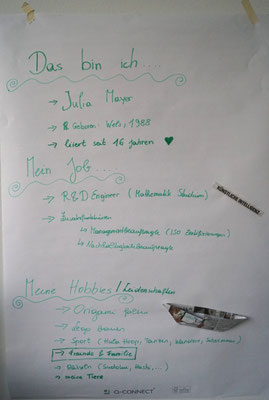 Das bin ich....
→ Julia Mayer
→ Geboren: Wels, 1988
→ liiert seit 16 Jahren ♥
Mein Job...
→ R&D Engineer (Mathematik Studium)
KÜNSTLICHE INTELLIGENZ
→ Zusatzfunktionen
↳ Managementbeauftragte (ISO Zertifizierungen)
↳ Nachhaltigkeitsbeauftragte
Meine Hobbies / Leidenschaften
→ Origami falten
→ Lego bauen
→ Sport (Hula Hoop, Tanzen, Wandern, Schwimmen)
→ Freunde & Familie
→ Rätseln (Sudoku, Hashi, ...)
→ meine Tiere